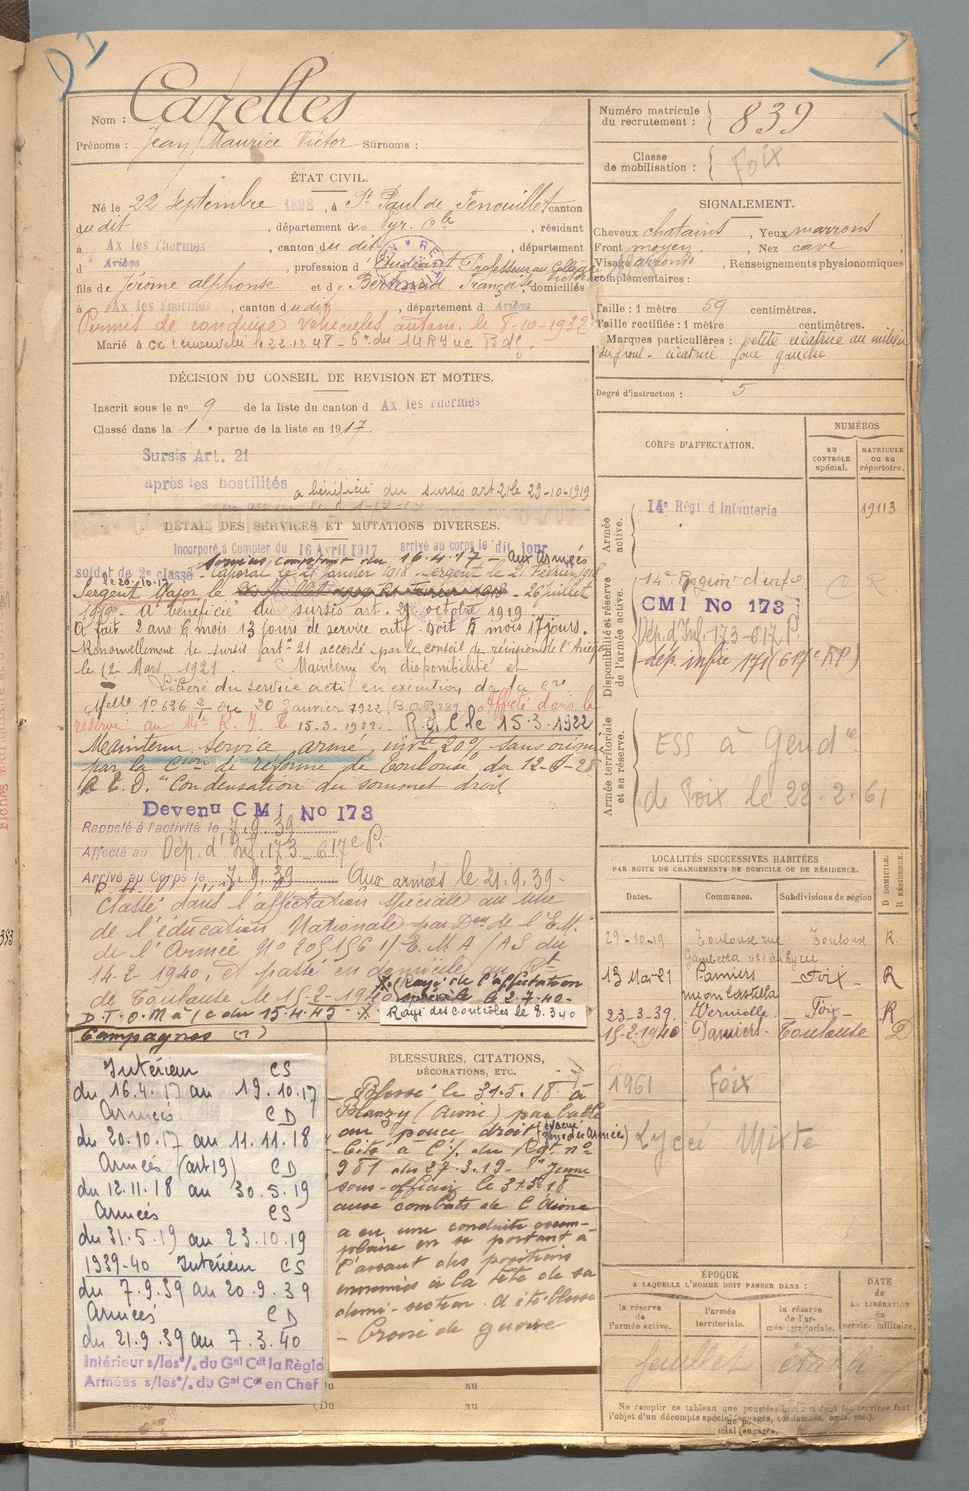 Nom : Cazelles
Prénoms : Jean Maurice Victor Surnoms :
Numéro matricule du recrutement : 839
Classe de mobilisation : Foix
ÉTAT CIVIL.
Né le 22 Septembre 1898, à St Paul de Fenouillet canton
dudit, département des Pyr. Oles, résidant
à Ax les Thermes, canton du dit, département
d Ariège, profession d'Etudiant Professeur au Collège
fils de Jérôme Alphonse et de Bertrand Françoise, domiciliés
à Ax les Thermes, canton dudit, département d Ariège
Permis de conduire véhicules autom. le 8-10-1932
Marié à 22.12.48
SIGNALEMENT.
Cheveux chatains, Yeux marrons
Front moyen. Nez cave
Visage arrondi, Renseignements physionomiques
complémentaires :
Taille : 1 mètre 59 centimètres.
Taille rectifiée : 1 mètre centimètres.
Marques particulières : petite cicatrice au milieu
du front. cicatrice joue gauche
Degré d'instruction : 5
DÉCISION DU CONSEIL DE REVISION ET MOTIFS.
Inscrit sous le no 9 de la liste du canton d Ax les Thermes
Classé dans la 1e partie de la liste en 1917.
Sursis Art. 21
après les hostilités a bénéficié du sursis art. 21 le 29-10-1919
DÉTAIL DES SERVICES ET MUTATIONS DIVERSES.
Incorporé à Compter du 16 Avril 1917 arrivé au corps le dit jour
Services comptant du 16.4.17 - Aux Armées
soldat de 2e classe Caporal le 21 janvier 1918 Sergent le 21 Février 1918
Sergent Major le 26 juillet
1919. A bénéficié du sursis art. 21 octobre 1919.
A fait 2 ans 6 mois 13 jours de service actif. Soit 5 mois 17 jours.
Renouvellement de sursis art. 21 accordé par le conseil de révision de l'Ariège
le 12 Mars 1921. Maintenu en disponibilité et
Libéré du service actif en exécution de la Cre
Melle No 636 du 20 Janvier 1922 (B.O.P. 239. Affecté dans la
réserve au 15.3.1922. R.d.C le 15.3.1922
Maintenu service armé, invté 20% sans origine
par la Cion de réforme de Toulouse du 12-6-28
"Condensation du sommet droit
Devenu CMI No 173
Rappelé à l'activité le 7.9.39
Affecté au Dép. d'Inf. 173 - 617e P.
Arrivé au Corps le 7.9.39 Aux armées le 21.9.39 -
Classé dans l'affectation spéciale au titre
de l'éducation Nationale par Don de l'E.M.
de l'Armée No 205156 1/E.M.A/AS du
14-2-1940, et passé en domicile au Rt
de Toulouse le 15-2-1940 X (Rayé de l'affectation
spéciale le 2.7.40 -
D.T.O.M à /c du 15.4.45 - X Rayé des contrôles le 8.3.40
Campagnes
Intérieur CS
du 16.4.17 au 19.10.17
Armées CD
du 20.10.17 au 11.11.18
Armées (art 19) CD
du 12.11.18 au 30.5.19
Armées CS
du 31.5.19 au 23.10.19
1939-40 Intérieur CS
du 7.9.39 au 20.9.39
Armées CD
du 21.9.39 au 7.3.40
Intérieur s/les o/. du Gal Cdt la Région
Armées s/les o/. du Gal Cdt en Chef
BLESSURES, CITATIONS,
DÉCORATIONS, ETC.
Blessé le 31.5.18 à
Blanzy (Aisne) par balle
au pouce droit
Cité à l'o/. du Rgt no
981 du 27.3.19 - Jeune
sous-officier le 31.5.18
aux combats de l'Aisne
a eu une conduite exem-
plaire en se portant à
l'assaut des positions
ennemies à la tête de sa
demi-section. A été blessé
- Croix de guerre
Du au
Du au
CORPS D'AFFECTATION.
NUMÉROS
AU CONTRÔLE spécial.
MATRICULE OU AU répertoire.
Armée active.
14e Régt d'Infanterie 19113
Disponibilité et réserve de l'armée active.
14e Régiment d'infie
CMI No 173
Dép. d'Inf. 173-617 P.
dép. infie 171 (617e RP)
Armée territoriale et sa réserve.
ESS à Gendie
de Foix le 22-2-61
LOCALITÉS SUCCESSIVES HABITÉES
PAR SUITE DE CHANGEMENTS DE DOMICILE OU DE RÉSIDENCE.
Dates. Communes. Subdivisions de région D DOMICILE. R RÉSIDENCE.
29-10-19 Toulouse rue Gambetta Toulouse R.
13 Mai 21 Pamiers Foix R
23-3-39. Verniolle Foix R
15-2-1940 Pamiers - Toulouse D
1961 Foix
Lycée Mixte
ÉPOQUE
A LAQUELLE L'HOMME DOIT PASSER DANS :
la réserve de l'armée active.
l'armée territoriale.
la réserve de l'armée territoriale.
DATE de LA LIBÉRATION du service militaire.
feuillet établi
Ne remplir ce tableau que pour les hommes dont les services font
l'objet d'un décompte spécial (engagés, condamnés, omis, etc.).